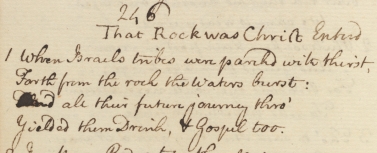 246
That Rock was Christ Enterd
1 When Israels tribes were parchd with thirst,
Forth from the rock the Waters burst:
And all their future journey thro'
Yielded them Drink, & Gospel too.